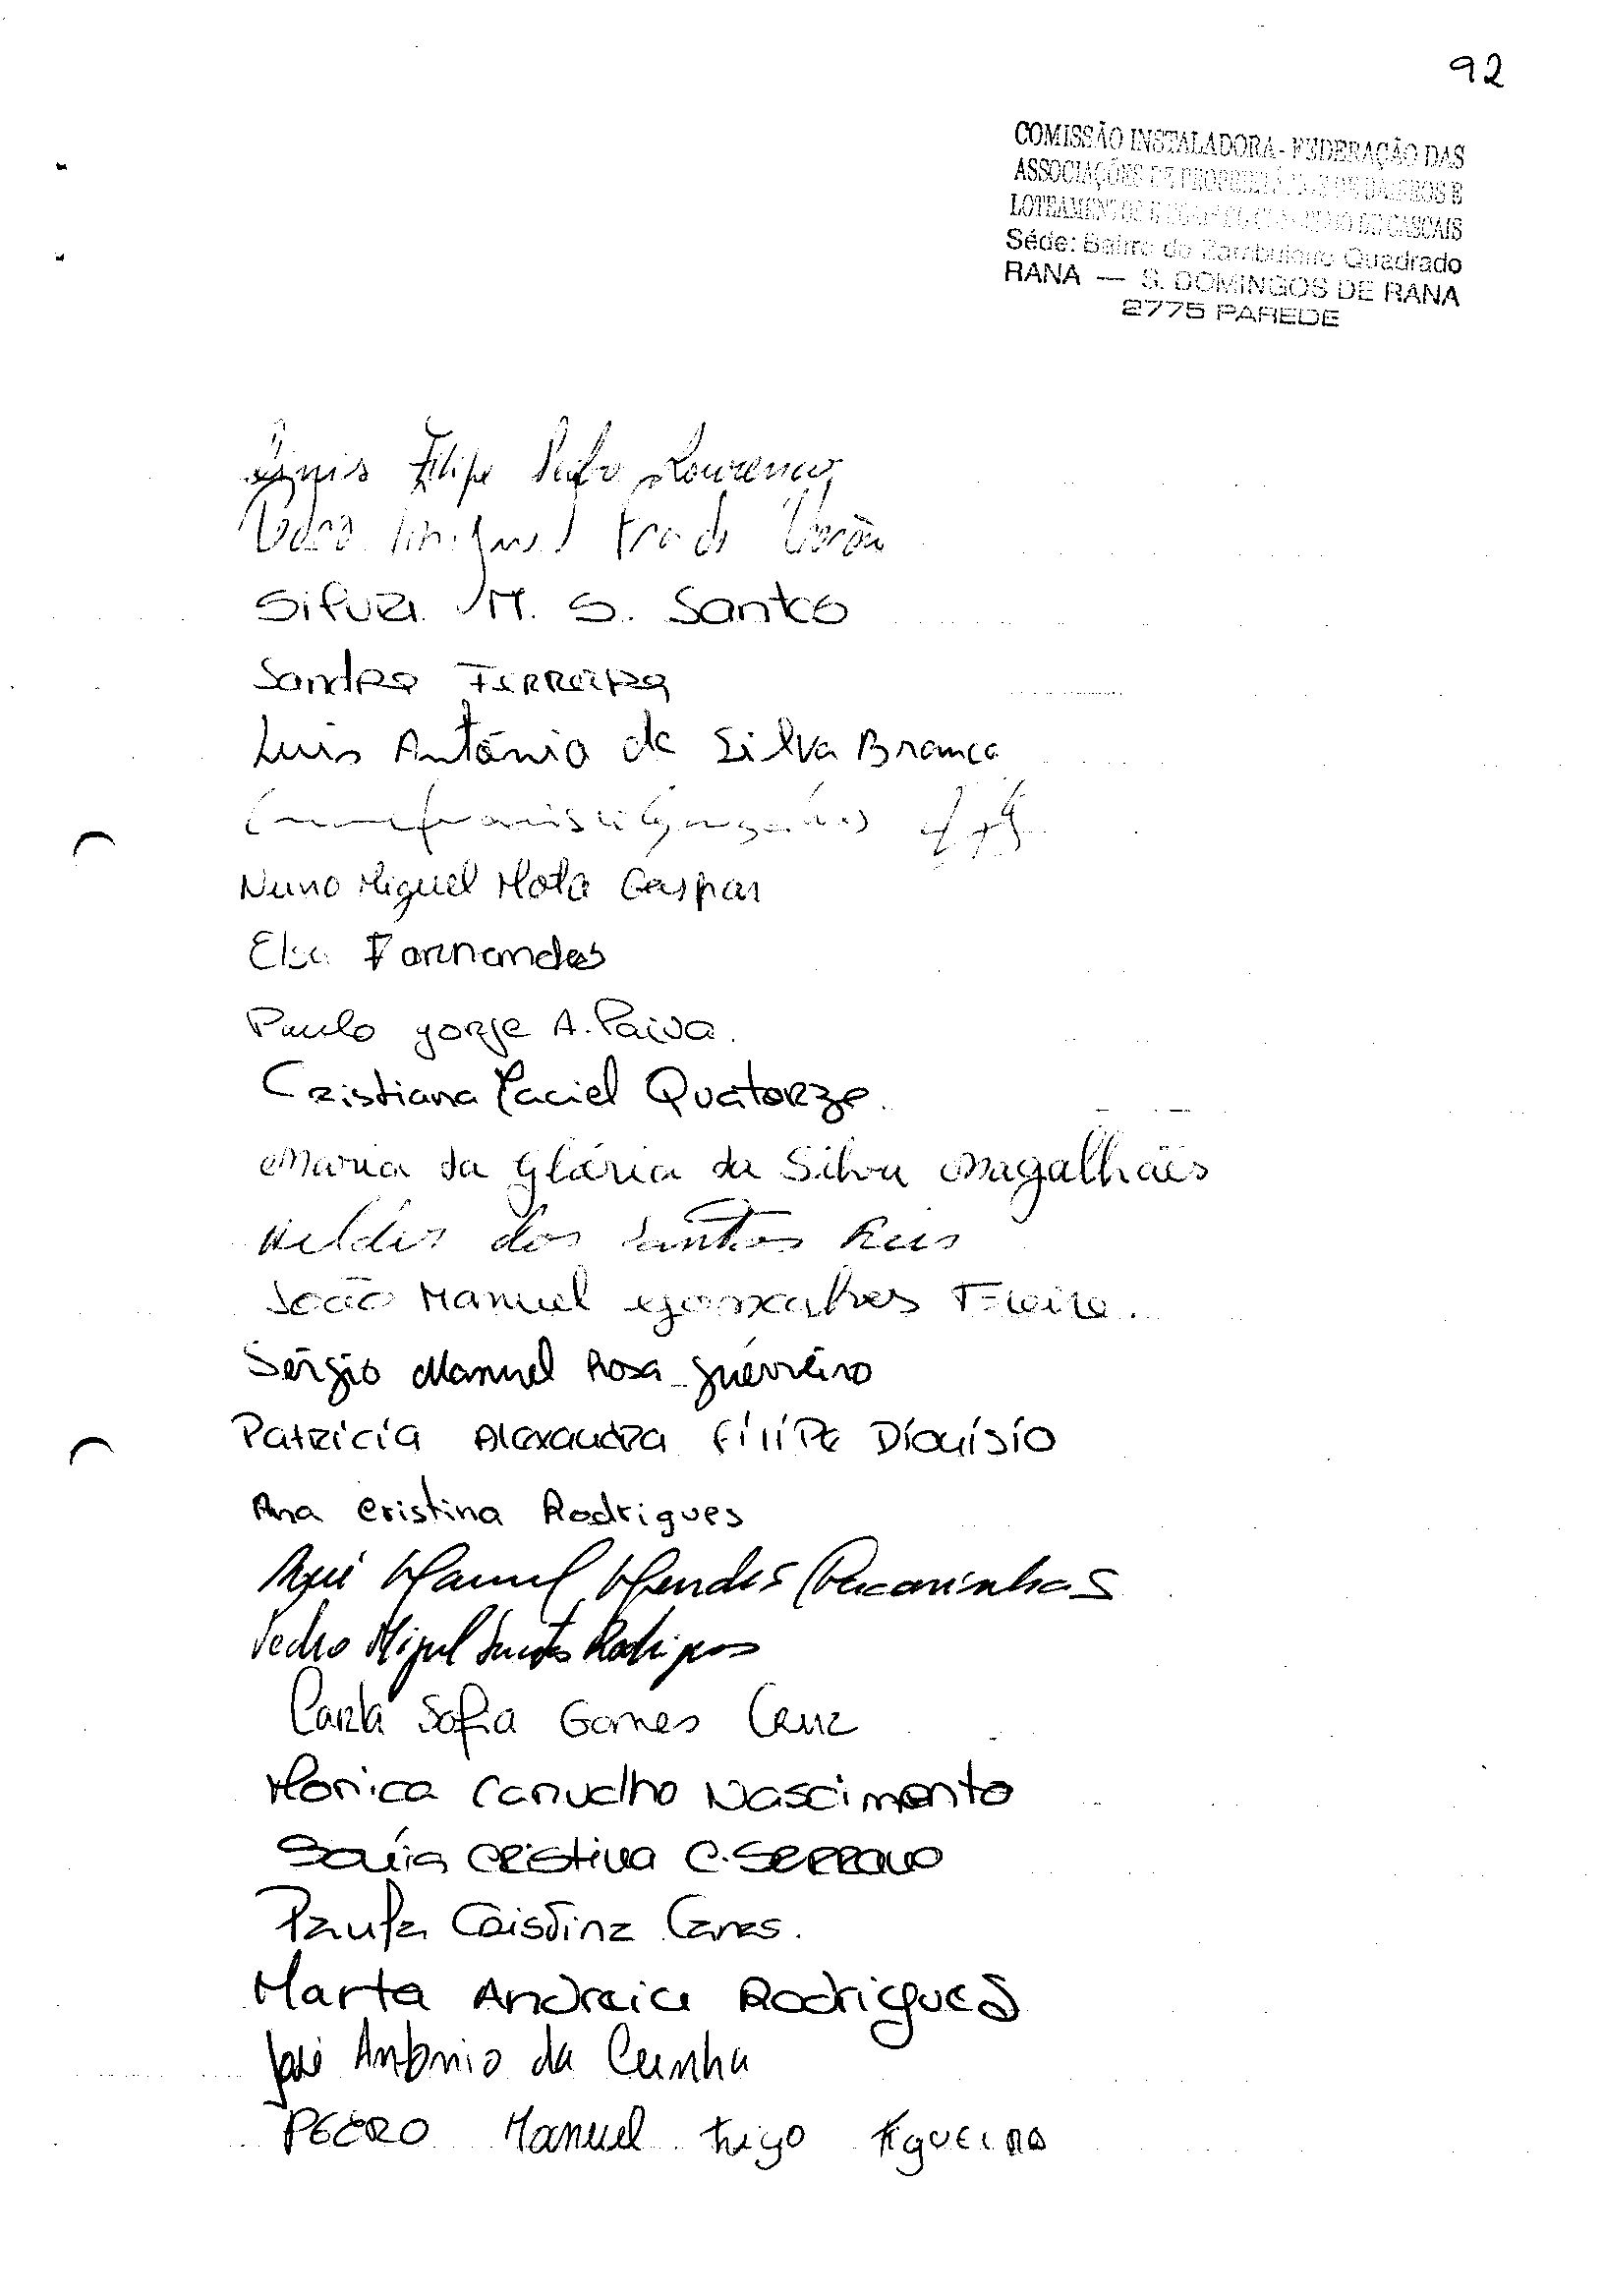 92
COMISSÃO INSTALADORA - FEDERAÇÃO DAS
ASSOCIAÇÕES DE
LOTEAMENTOS E DE CASCAIS
Séde: Bairro do Zambujeiro Quadrado
RANA — S. DOMINGOS DE RANA
2775 PAREDE
Filipe Lourenço
Silvia M. S. Santos
Sandra Ferreira
Luis António da Silva Branco
Nuno Miguel Mota Gaspar
Elsa Fernandes
Paulo Jorge A. Paiva.
Cristiana Maciel Quatorze.
Maria da Glória da Silva Magalhães
Helder dos Santos Reis
João Manuel Gonçalves Freire.
Sérgio Manuel Rosa Guerreiro
Patricia Alexandra Filipe Dionísio
Ana Cristina Rodrigues
Manuel Mendes
Pedro Miguel Santos Rodrigues
Carla Sofia Gomes Cruz
Monica Carvalho Nascimento
Sónia Cristina C. Serrano
Paula Cristina
Marta Andreia Rodrigues
José António da Cunha
PEDRO Manuel Trigo Figueira